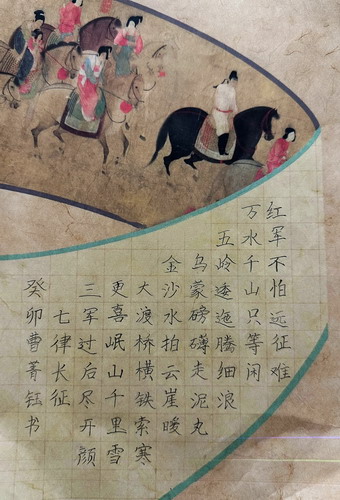 红军不怕远征难
万水千山只等闲
五岭逶迤腾细浪
乌蒙磅礴走泥丸
金沙水拍云崖暖
大渡桥横铁索寒
更喜岷山千里雪
三军过后尽开颜
七律长征
癸卯曹菁钰书